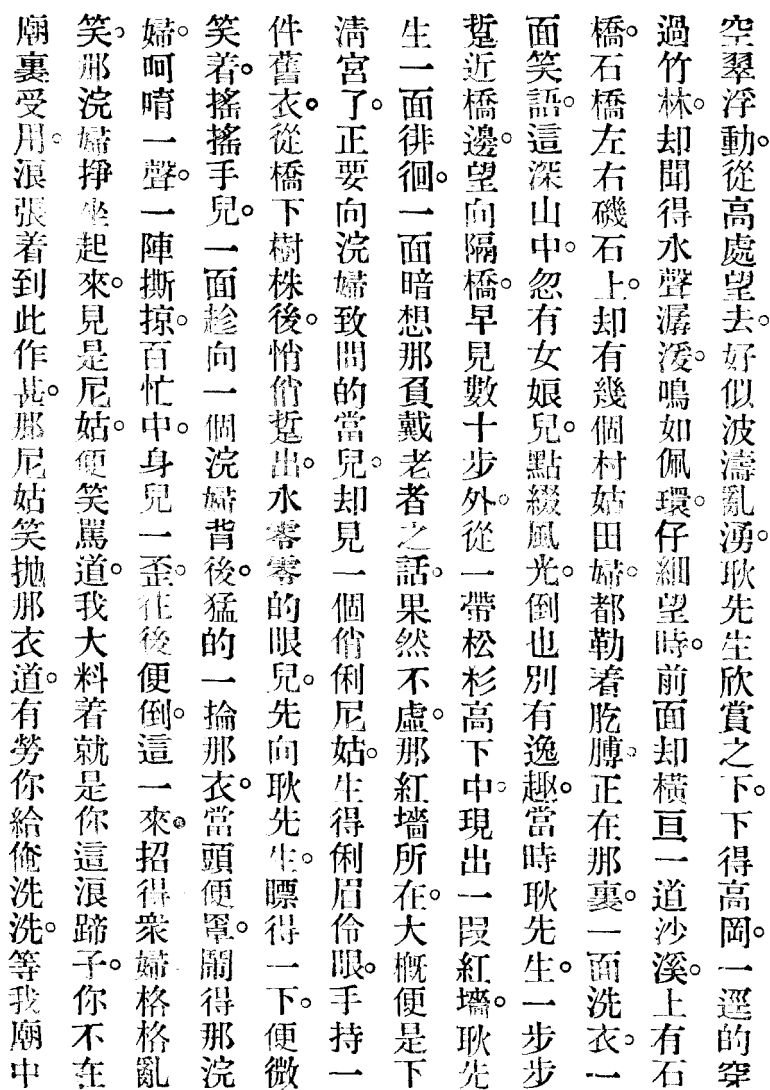 空翠浮動。從高處望去。好似波濤亂湧。耿先生欣賞之下。下得高岡。一逕的穿
過竹林。却聞得水聲潺湲。鳴如佩環。仔細望時。前面却橫亘一道沙溪。上有石
橋。石橋左右磯石上。却有幾個村姑田婦。都勒着肐膊。正在那裏。一面洗衣。一
面笑語。這深山中。忽有女娘兒。點綴風光。倒也別有逸趣。當時耿先生。一步步
踅近橋邊。望向隔橋。早見數十步外。從一帶松杉高下中。現出一段紅墻。耿先
生一面徘徊。一面暗想那負戴老者之話。果然不虛。那紅墻所在。大概便是下
清宮了。正要向浣婦致問的當兒。却見一個俏俐尼姑。生得俐眉伶眼。手持一
件舊衣。從橋下樹株後。悄俏踅出。水零零的眼兒。先向耿先生。瞟得一下。便微
笑着。搖搖手兒。一面趁向一個浣婦背後。猛的一掄那衣。當頭便罩。鬧得那浣
婦。呵唷一聲。一陣撕掠。百忙中。身兒一歪。往後便倒。這一來。招得衆婦格格亂
笑。那浣婦掙坐起來。見是尼姑。便笑罵道。我大料着就是你這浪蹄子。你不在
廟裏受用。浪張着到此作甚。那尼姑笑抛那衣道。有勞你給俺洗洗。等我廟中